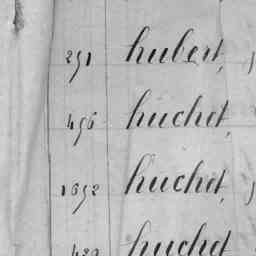 291 hubert,
496 huchet,
1692 huchet,
huchet